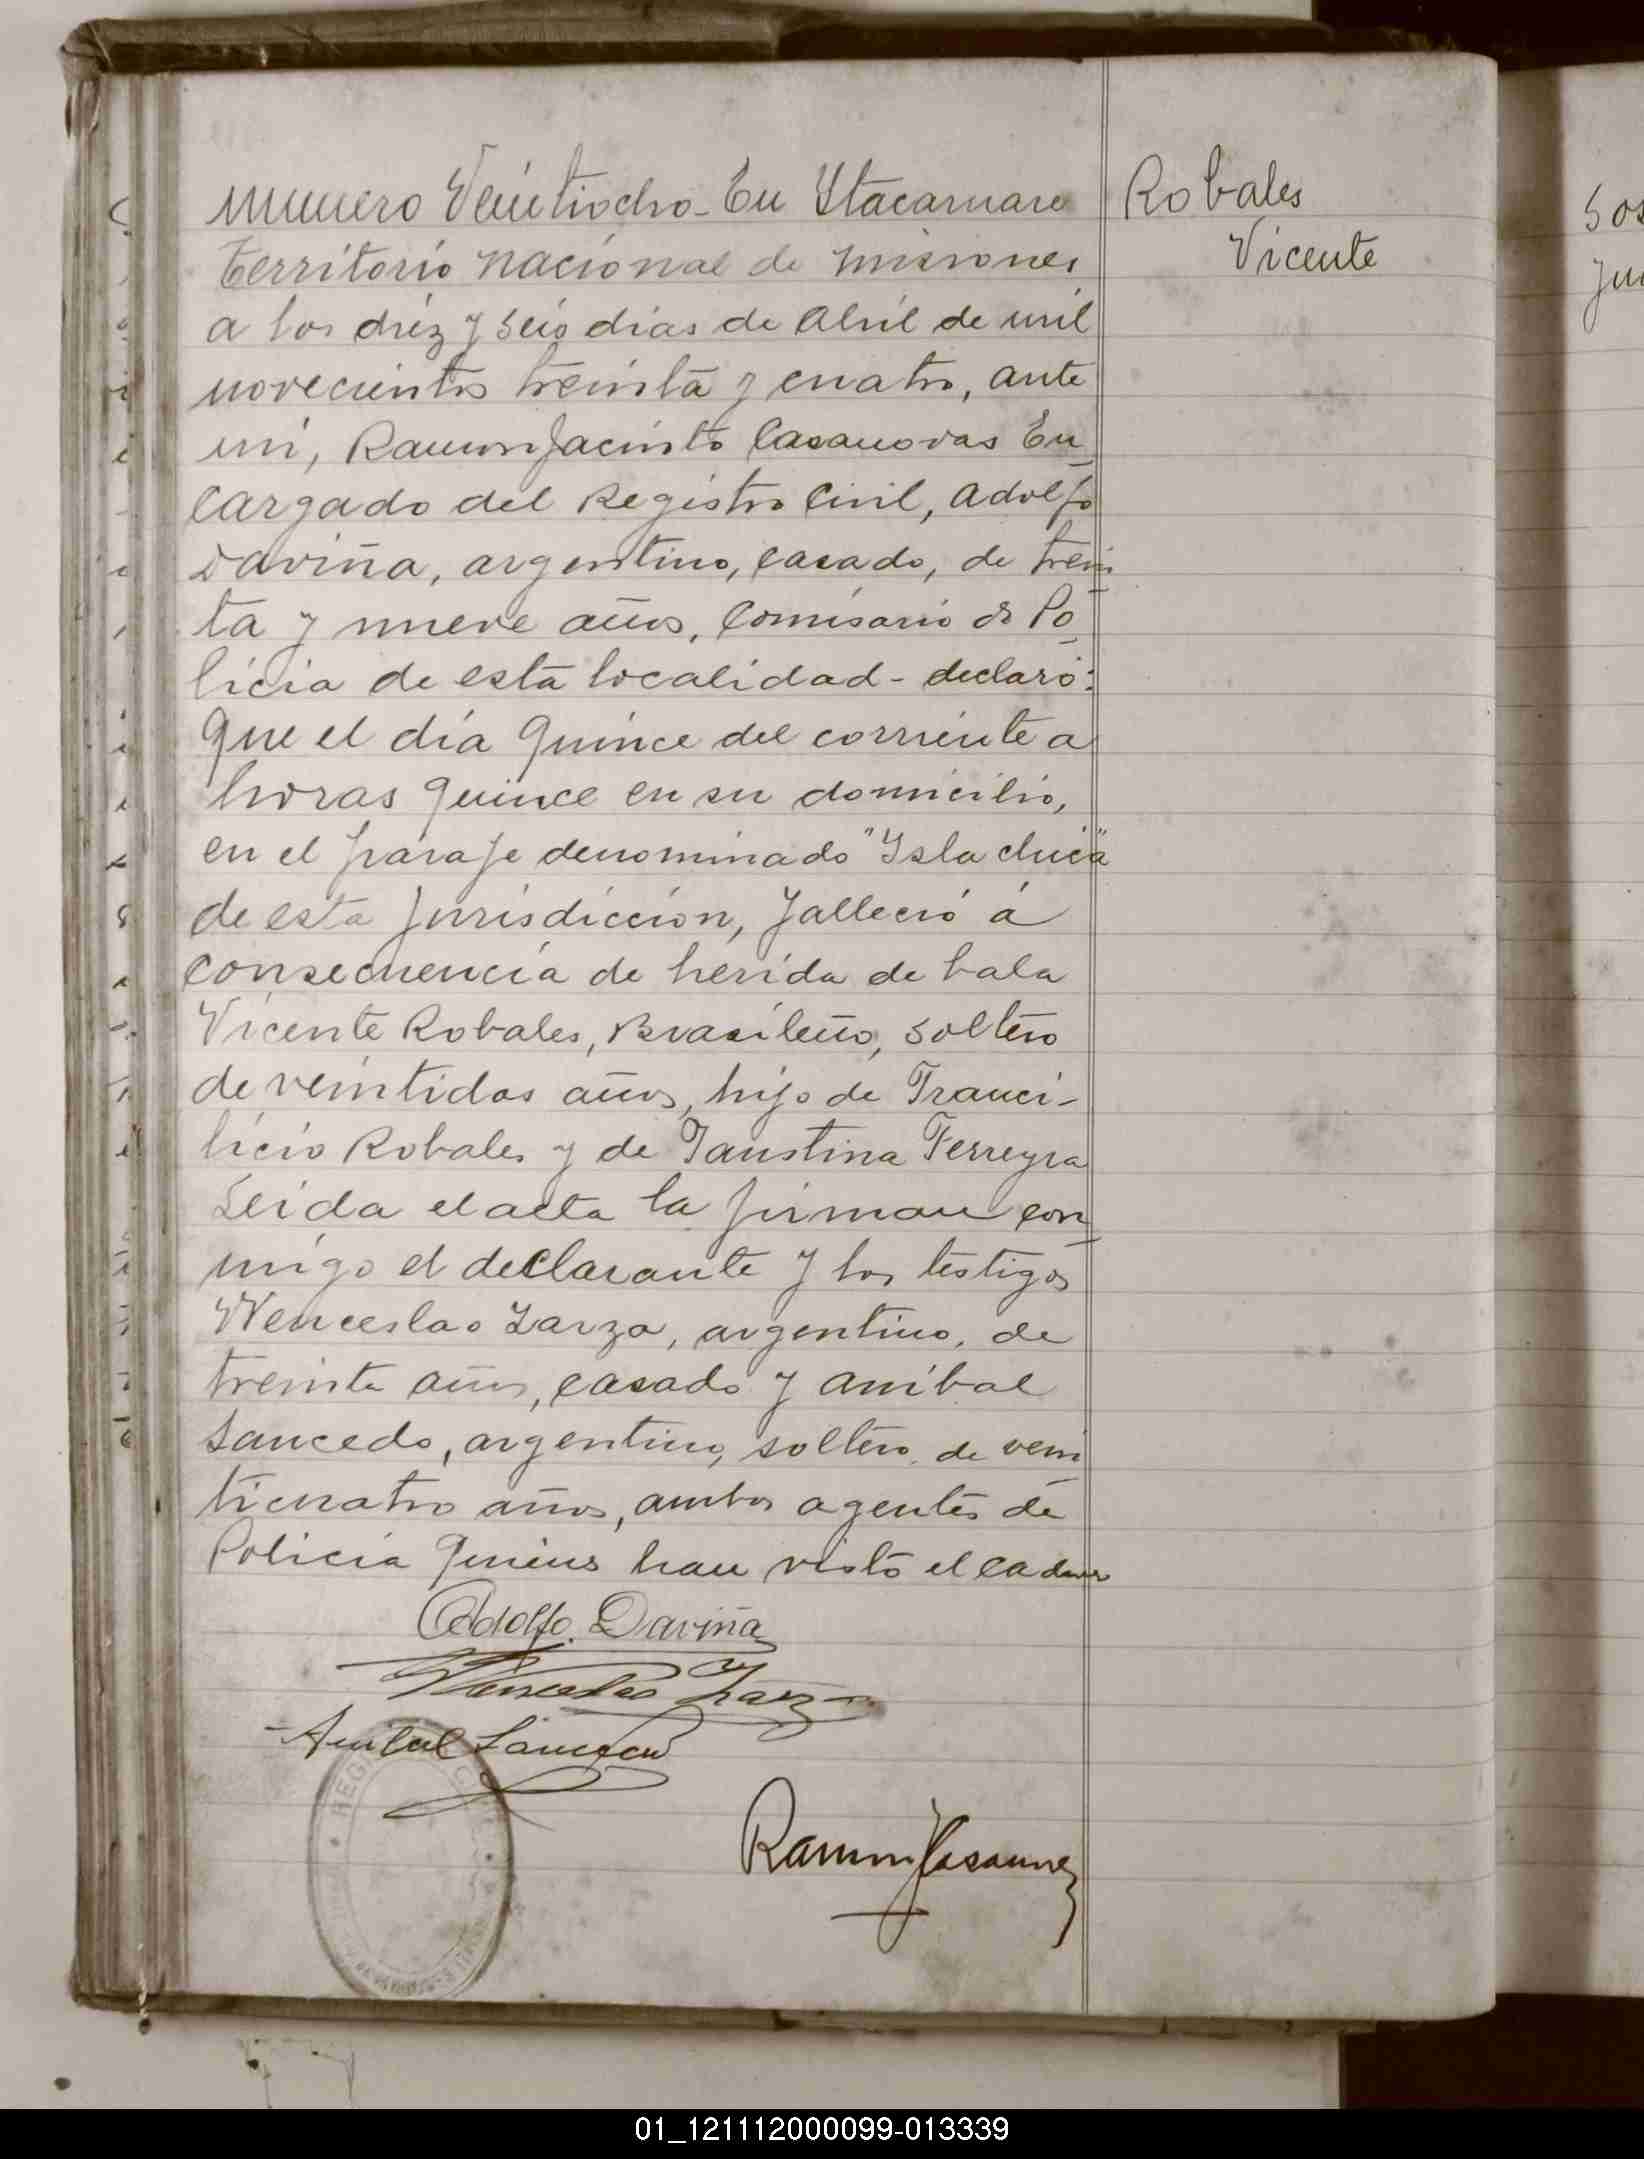 Robales
Vicente
Numero Veintiocho - En Itacaruare
Territorio Nacional de Misiones
a los diez y seis dias de Abril de mil
novecientos treinta y cuatro, ante
mi, Ramon Jacinto Casanovas En
cargado del Registro Civil, Adolfo
Daviña, argentino, casado, de trein
ta y nueve años, Comisario de Po
licia de esta localidad - declaró:
Que el día quince del corriente a
horas quince en su domicilio,
en el paraje denominado "Isla chica"
de esta jurisdicción, falleció á
consecuencia de herida de bala
Vicente Robales, Brasileño, soltero
de veintidos años, hijo de Franci-
licio Robales y de Faustina Ferreyra
Leida el acta la firman con
migo el declarante y los testigos
Wenceslao Zarza, argentino, de
treinta años, casado y Anibal
Saucedo, argentino, soltero, de vein
ticuatro años, ambos agentes de
Policia quienes han visto el cadaver
Adolfo Daviña
Wenceslao Zarza
Anibal Saucedo
REGI
Ramon J Casanovas
01_121112000099-013339